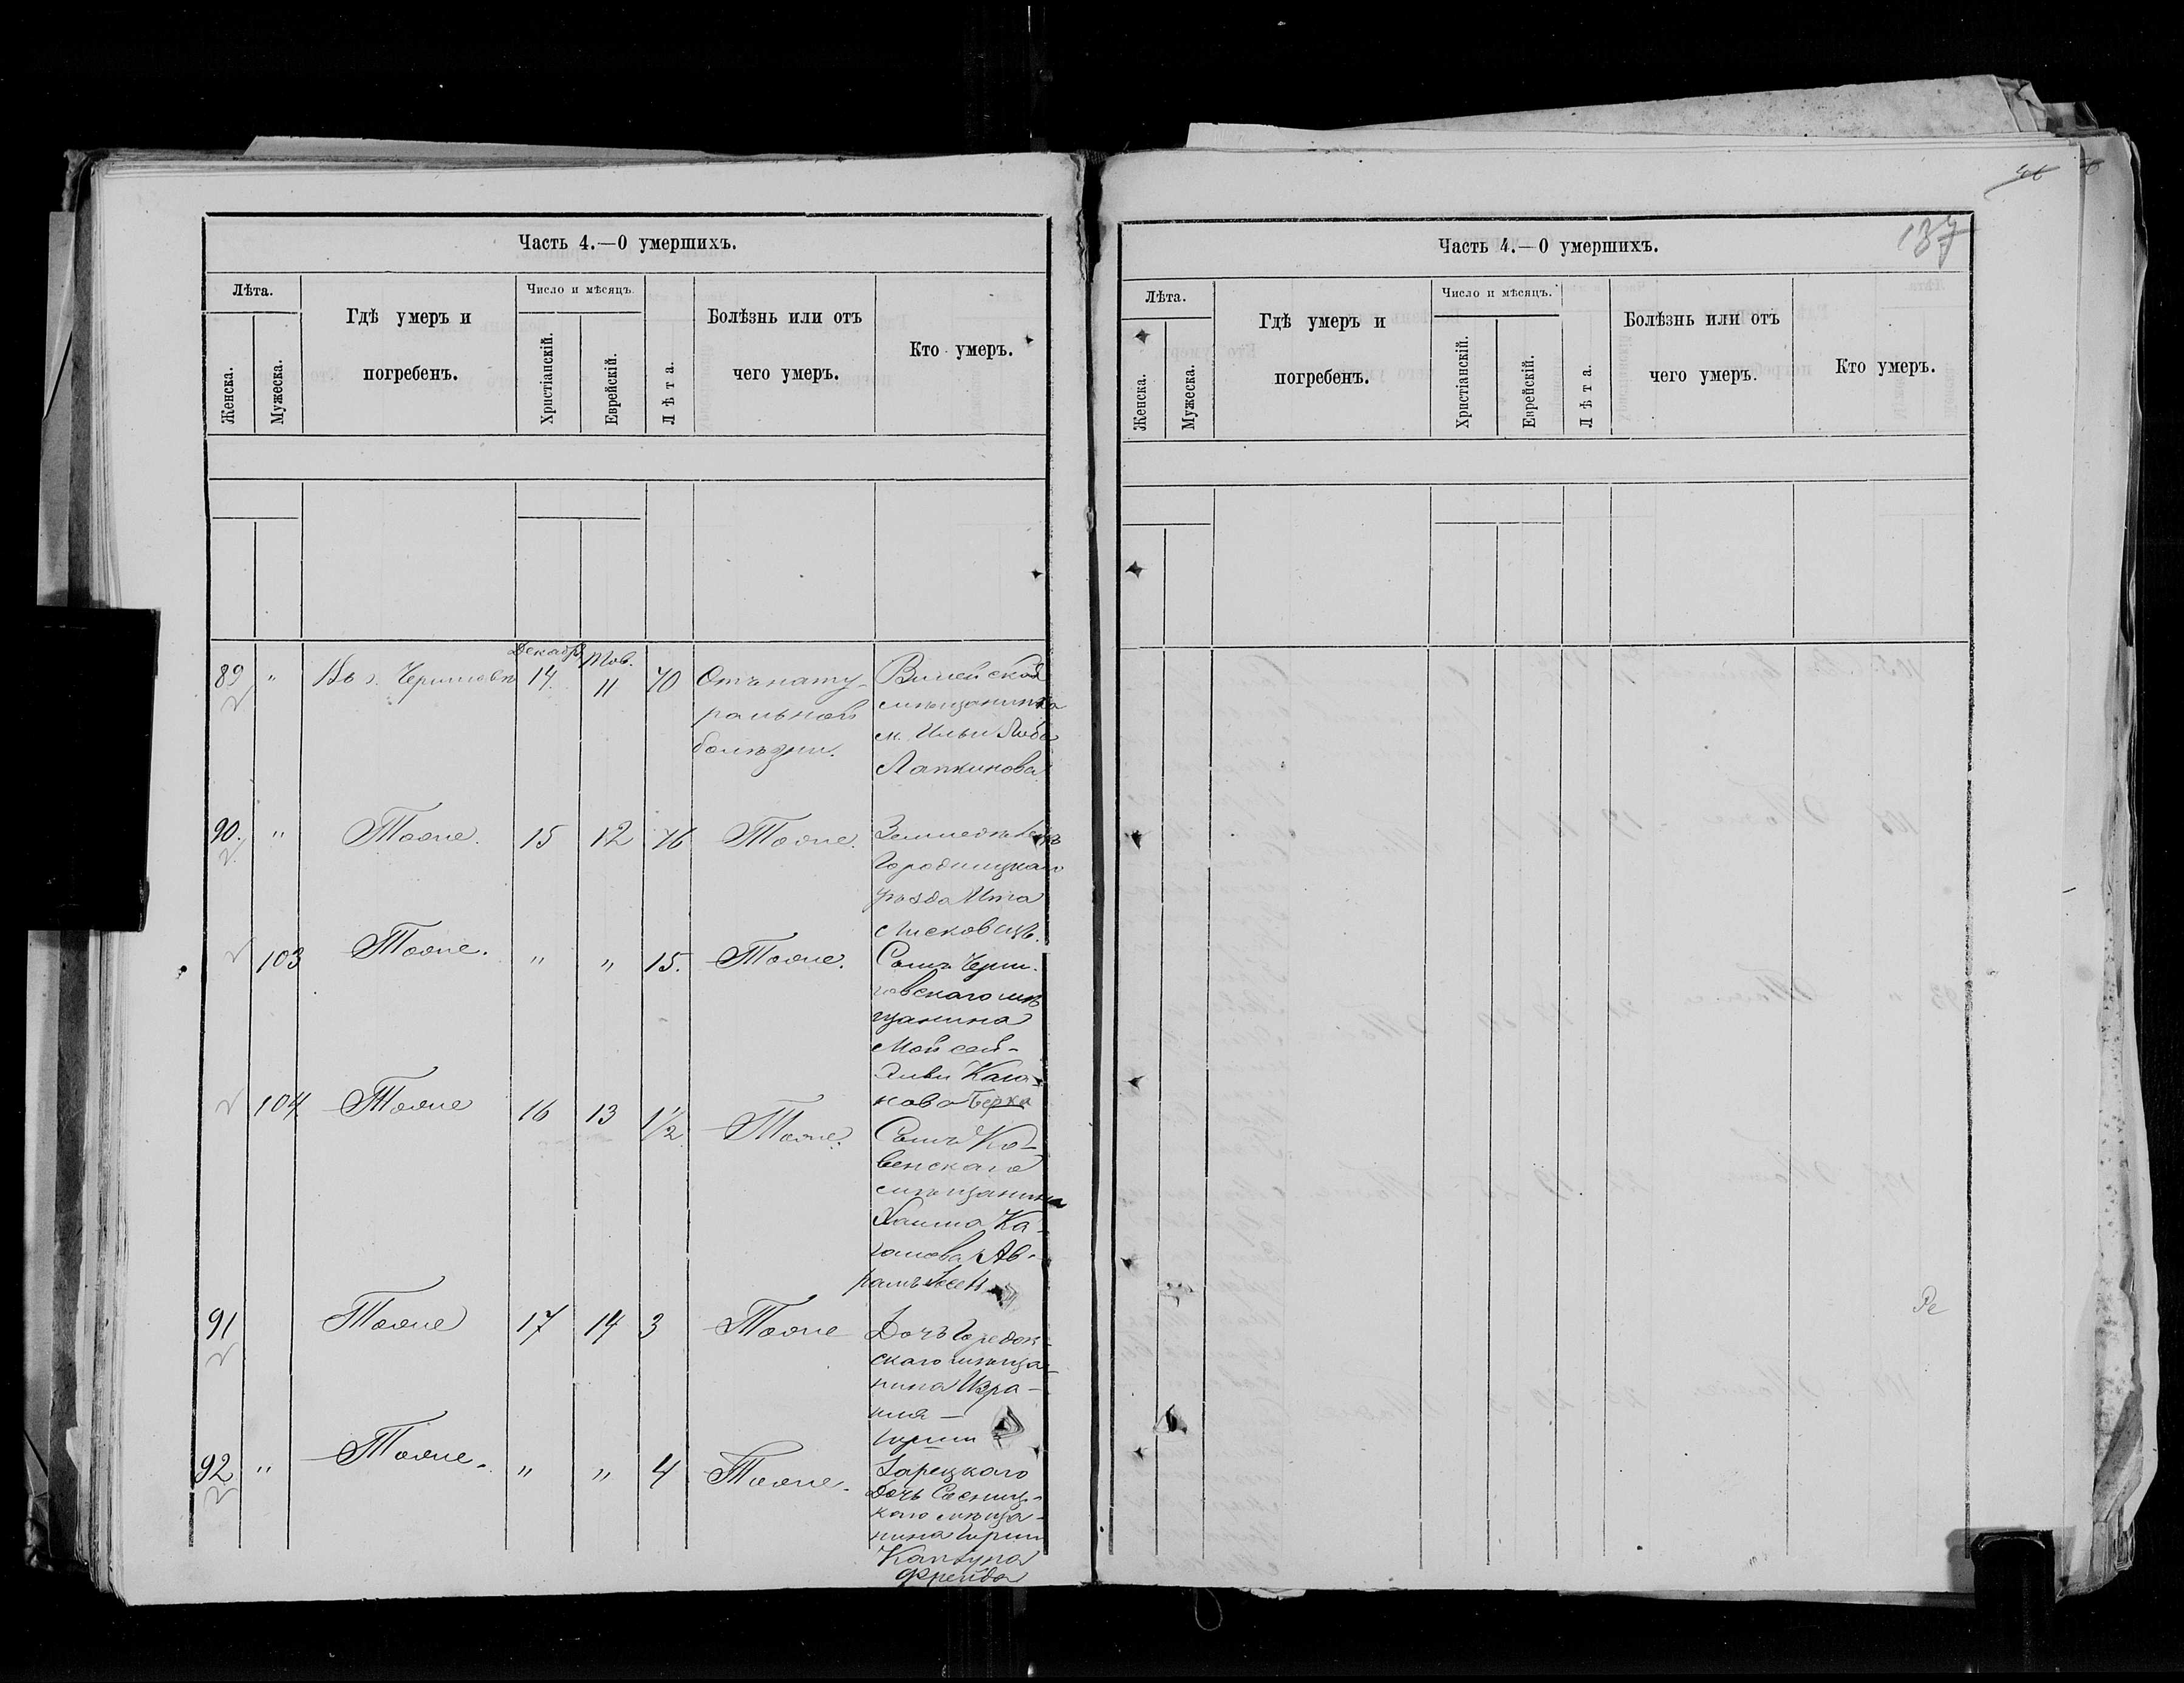 Часть 4.—О умершихъ.
Лѣта.
Женска.
Мужеска.
Гдѣ умеръ и
погребенъ.
Число и мѣсяцъ.
Христіанскій.
Еврейскій.
Лѣта.
Болѣзнь или отъ
чего умеръ.
Кто умеръ.
Декабр.
89 " Въ г. Черниговѣ 14 11 70 Отъ нату-
ральной
болѣзни.
мѣщанинка
м. Ильи
Лапкинова
90. " Тоже. 15 12 76 Тоже.
Городницкаго
уѣзда
103 Тоже. " " 15. Тоже. Сынъ Черни-
говскаго мѣ
щанина
Мойсей-
Кага-
нова Берка
104 Тоже 16 13 1/2 Тоже. Сынъ Ко-
венскаго
мѣщанина
Хаима Ка-
ганова Ав-
рамъ
91 Тоже 17 14 3 Тоже Дочь Городн-
скаго мѣща-
нина Изра-
иля —
Зарецкаго
92 " Тоже. " " 4 Тоже. Дочь Сосниц-
каго мѣща-
нина Гирши
Каплуна
Фрейда
Часть 4.—О умершихъ.
137
Лѣта.
Женска.
Мужеска.
Гдѣ умеръ и
погребенъ.
Число и мѣсяцъ.
Христіанскій.
Еврейскій.
Лѣта.
Болѣзнь или отъ
чего умеръ.
Кто умеръ.